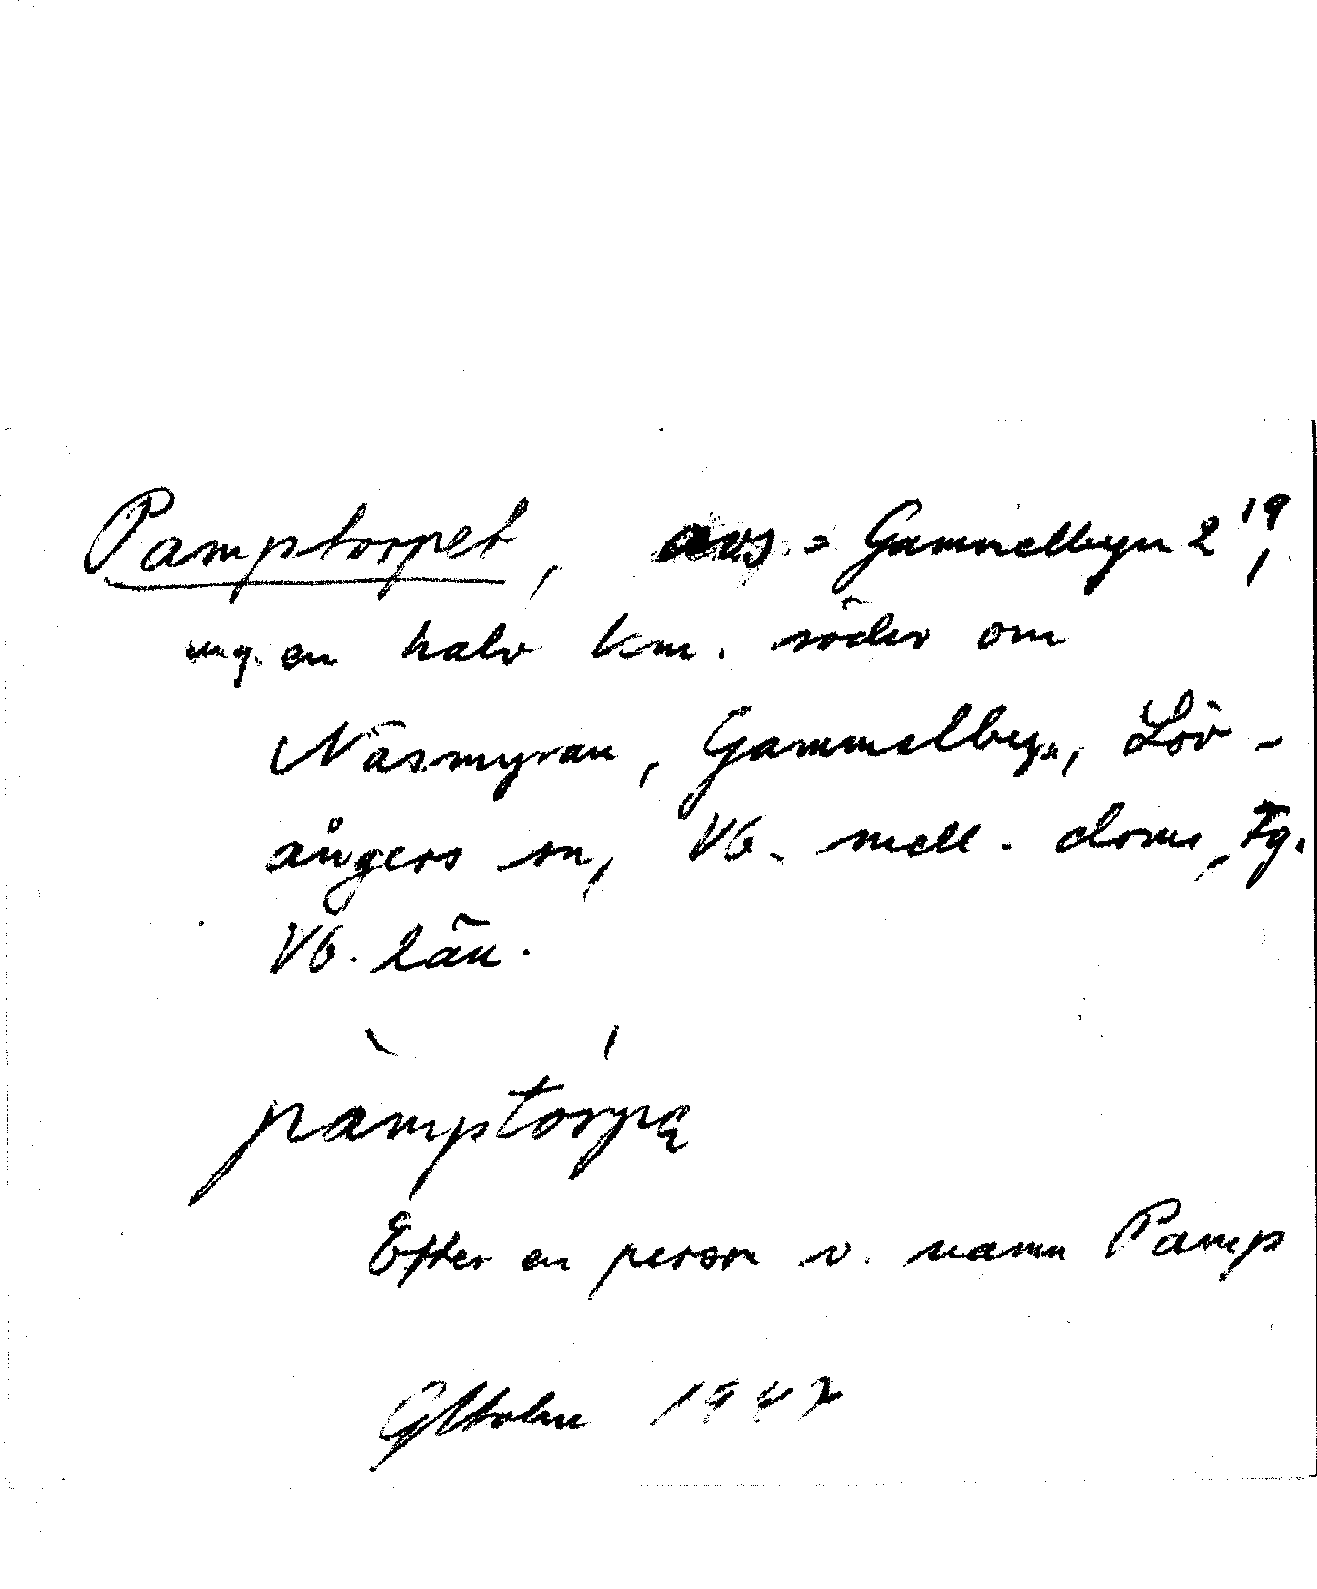 Pamptorpet, avs. = Gammelbyn 2¹⁹,
ung. en halv km. söder om
Näsmyran, Gammelbyn, Löv-
ångers sn, Vb. mell. doms, Fg.
Vb. län.
pàmptórpą
Efter en person v. namn Pamp
1947